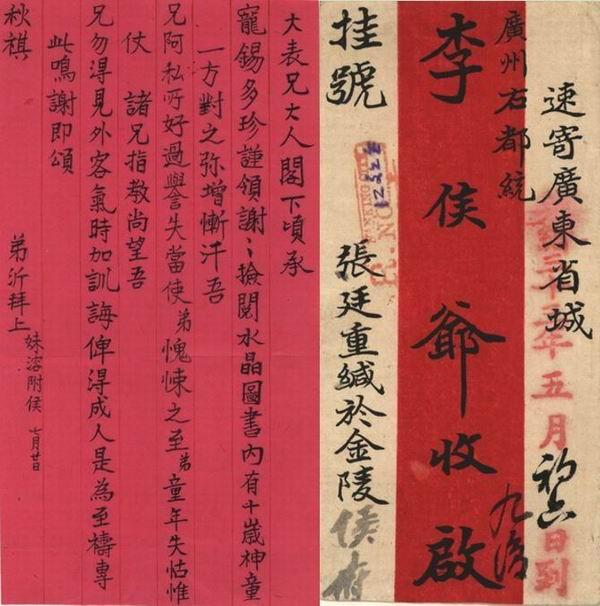 速寄廣東省城
五月初六日到
廣州右都統
李侯爺收啟
挂號
張廷重緘於金陵侯府
大表兄大人閣下頃承
寵錫多珍謹領謝〻撿閱水晶圖書內有千歲神童
一方對之弥增慚汗吾
兄阿私所好過譽失當使弟愧悚之至弟童年失怙惟
仗 諸兄指教尚望吾
兄勿得見外客氣時加訓誨俾得成人是為至禱專
此鳴謝即頌
秋祺
弟沂拜上 妹溶附侯 七月廿日